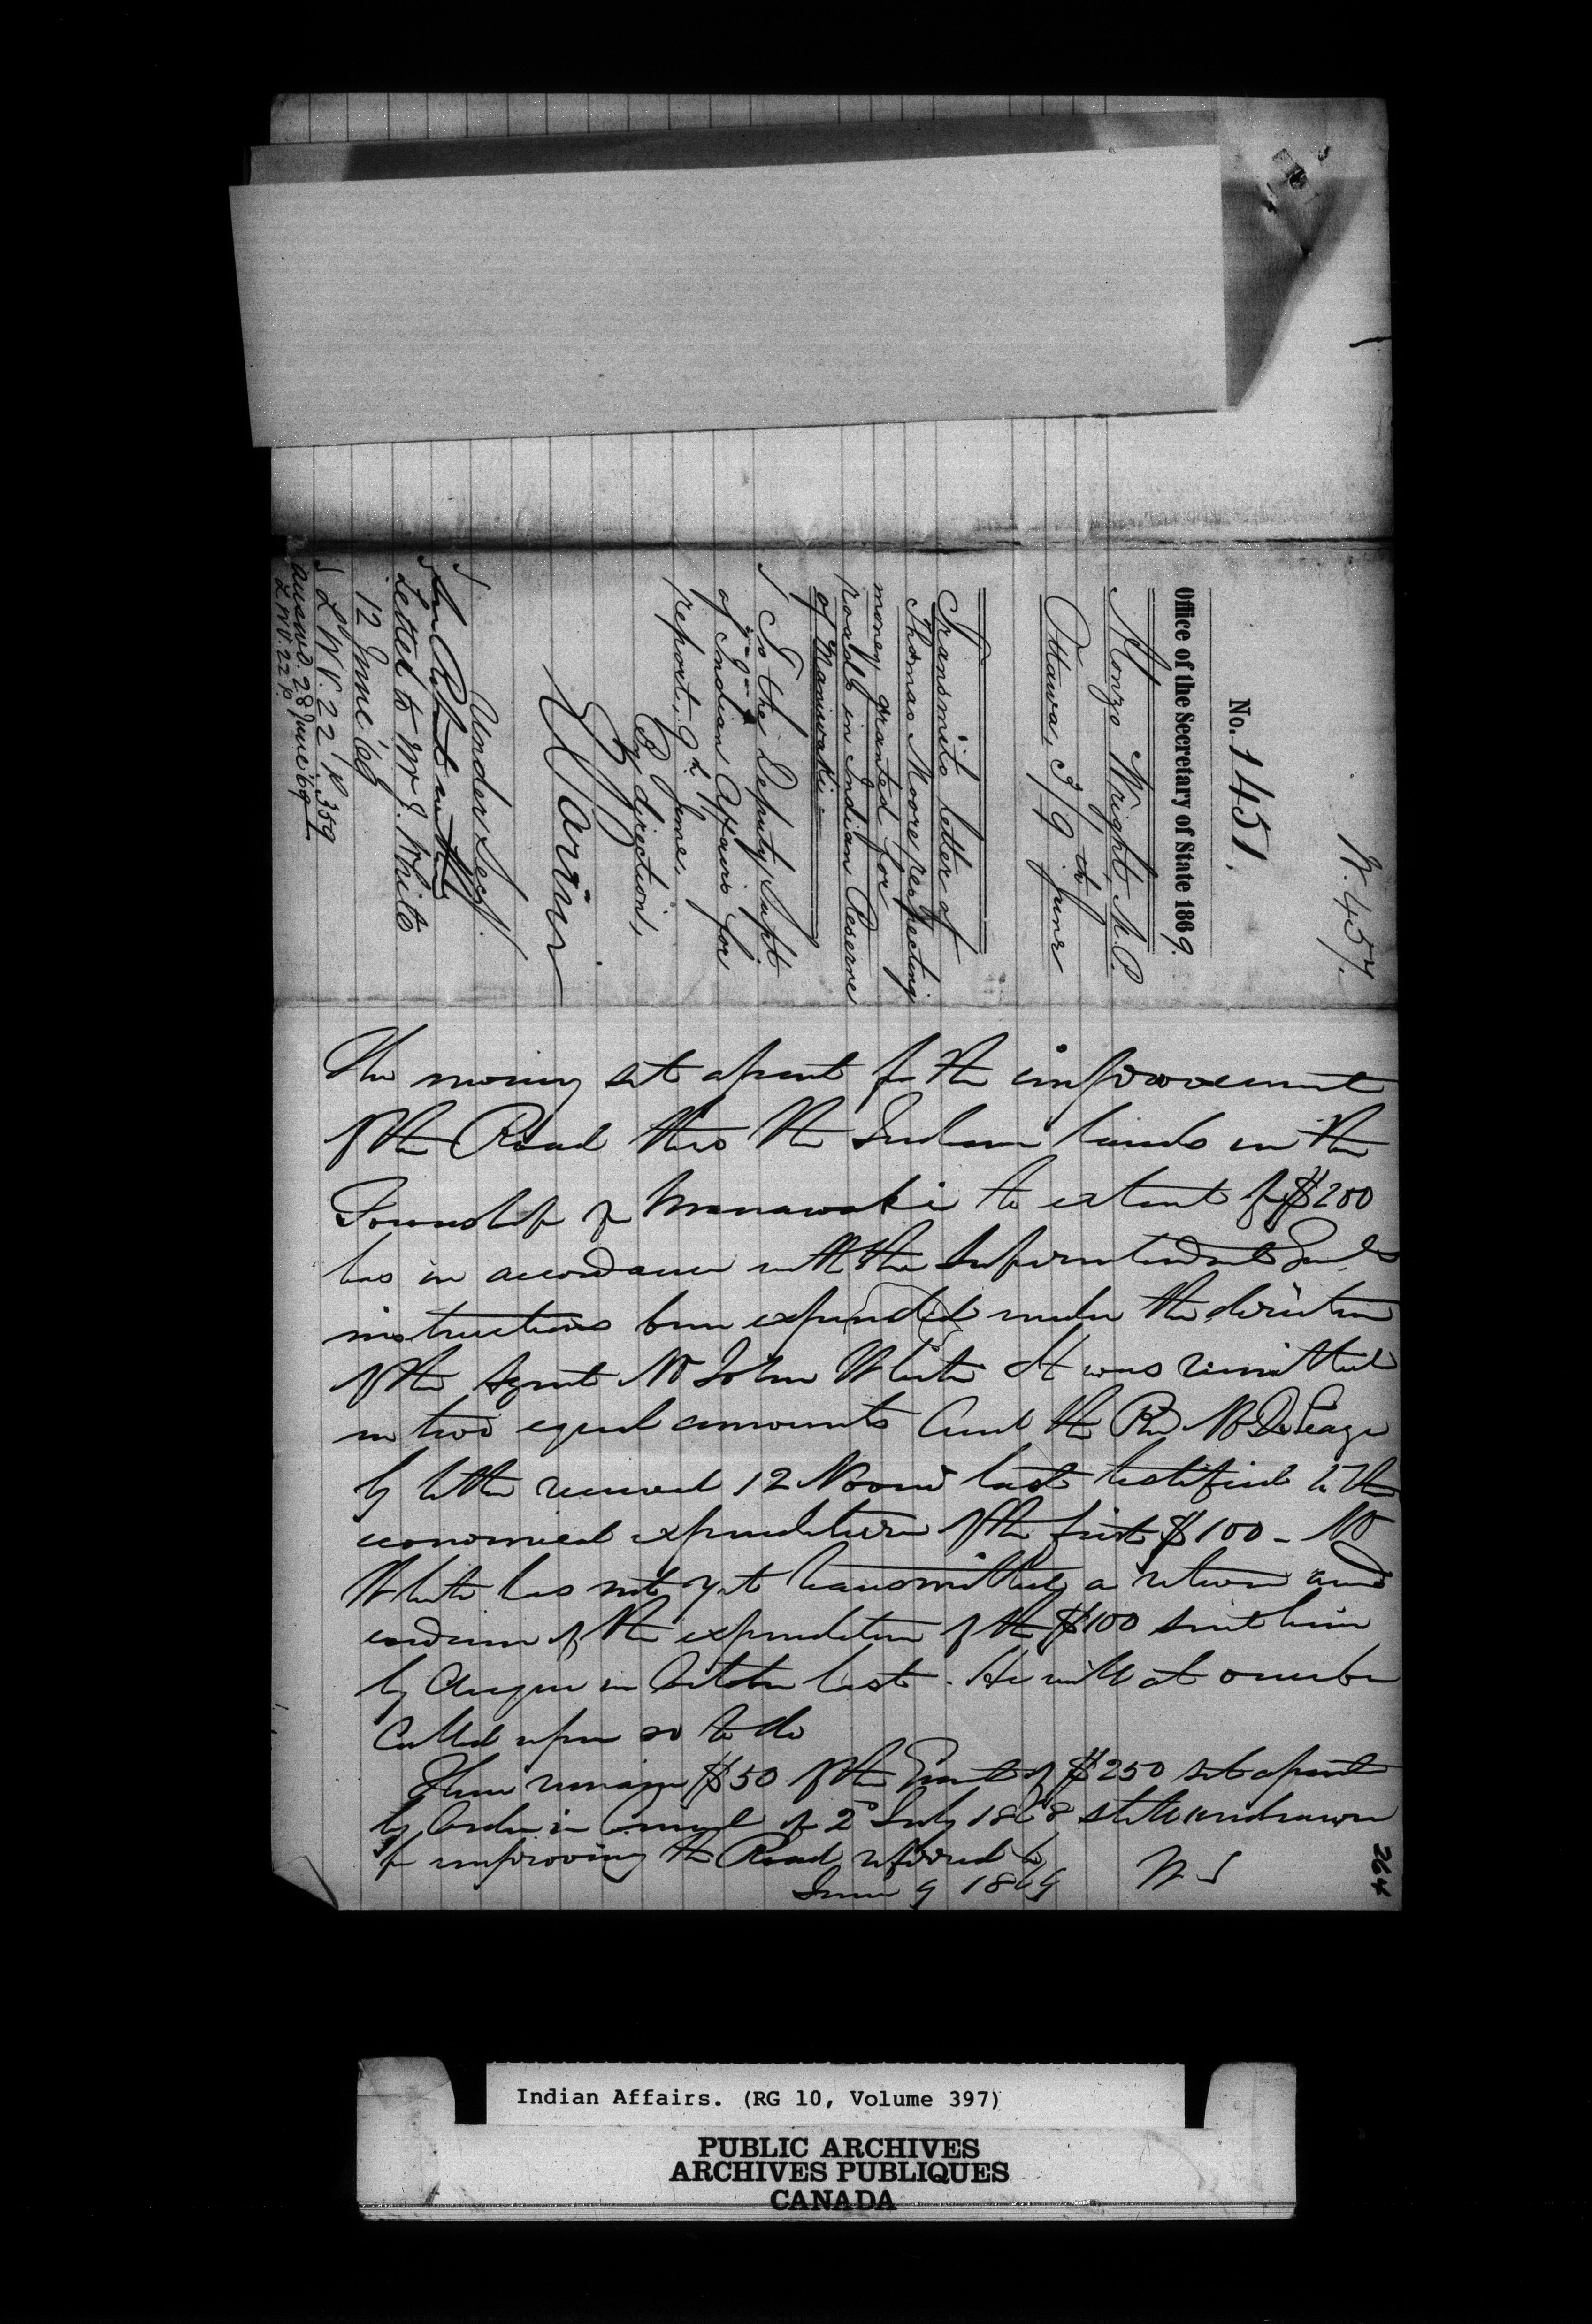 W. 457.
No. 1451.
Office of the Secretary of State 1869.
Alonzo Wright, M.P.
Ottawa, 3/9th June
Transmits letter of
Thomas Moore respecting
money granted for
roads in Indian Reserve
of Maniwaki =
To the Deputy Supt
of Indian Affairs for
report, 9th June.
By direction,
E Parent
Under Secy.
Letter to Mr J. White
12 June '69
L W V. 22 p. 359
answd. 28 June '69
L W V. 22 P.
The money set apart for the improvement
of the Road thro the Indian lands in the
Township of Manawaki to extent of $200
has in accordance with the Superintendent Genl's
instructions been expended under the direction
of the Agent Mr John White It was remitted
in two equal amounts And the Rev Mr DeLeage
by letter received 12 Novr last testified to the
economical expenditure of the first $100 - Mr
White has not yet transmitted a return and
evidence of the expenditure of the $100 sent him
by cheque in October last. He will at once be
called upon so to do
There remain $50 of the Grant of $250 set apart
by Order in Council of 2d July 1868 still undrawn
for improving the Road referred to
June 9 1869 W S
264
Indian Affairs. (RG 10, Volume 397)
PUBLIC ARCHIVES
ARCHIVES PUBLIQUES
CANADA